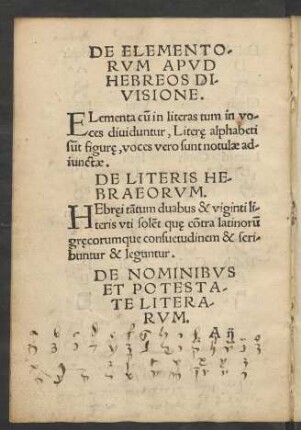 DE ELEMENTO-
RVM APVD
HEBREOS DI-
VISIONE.
ELementa cū in literas tum in vo-
ces diuiduntur, Literę alphabeti
sūt figurę, voces vero sunt notulæ ad-
iunctæ.
DE LITERIS HE-
BRAEORVM.
HEbręi tātum duabus & viginti li-
teris vti solēt quę cōtra latinorū
gręcorumque consuetudinem & scri-
buntur & leguntur.
DE NOMINIBVS
ET POTESTA-
TE LITERA-
RVM.